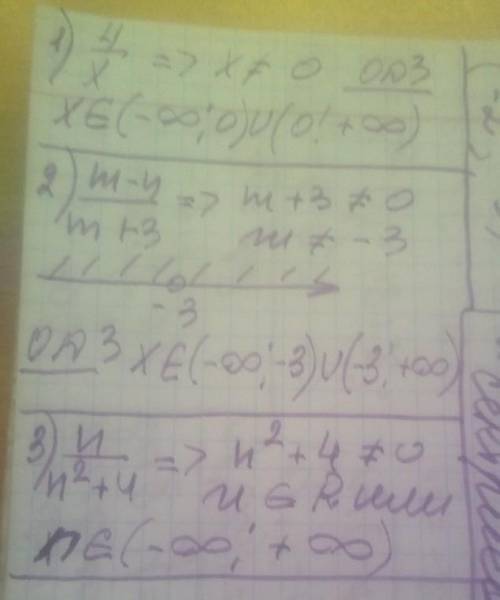 1) 4/x => x ≠ 0 ОДЗ
x∈(-∞;0)∪(0;+∞)
2) m-4/m+3 => m+3 ≠ 0
m ≠ -3
-3
ОДЗ x∈(-∞;-3)∪(-3;+∞)
3) n/n²+4 => n²+4 ≠ 0
n ∈ R или
n∈(-∞;+∞)